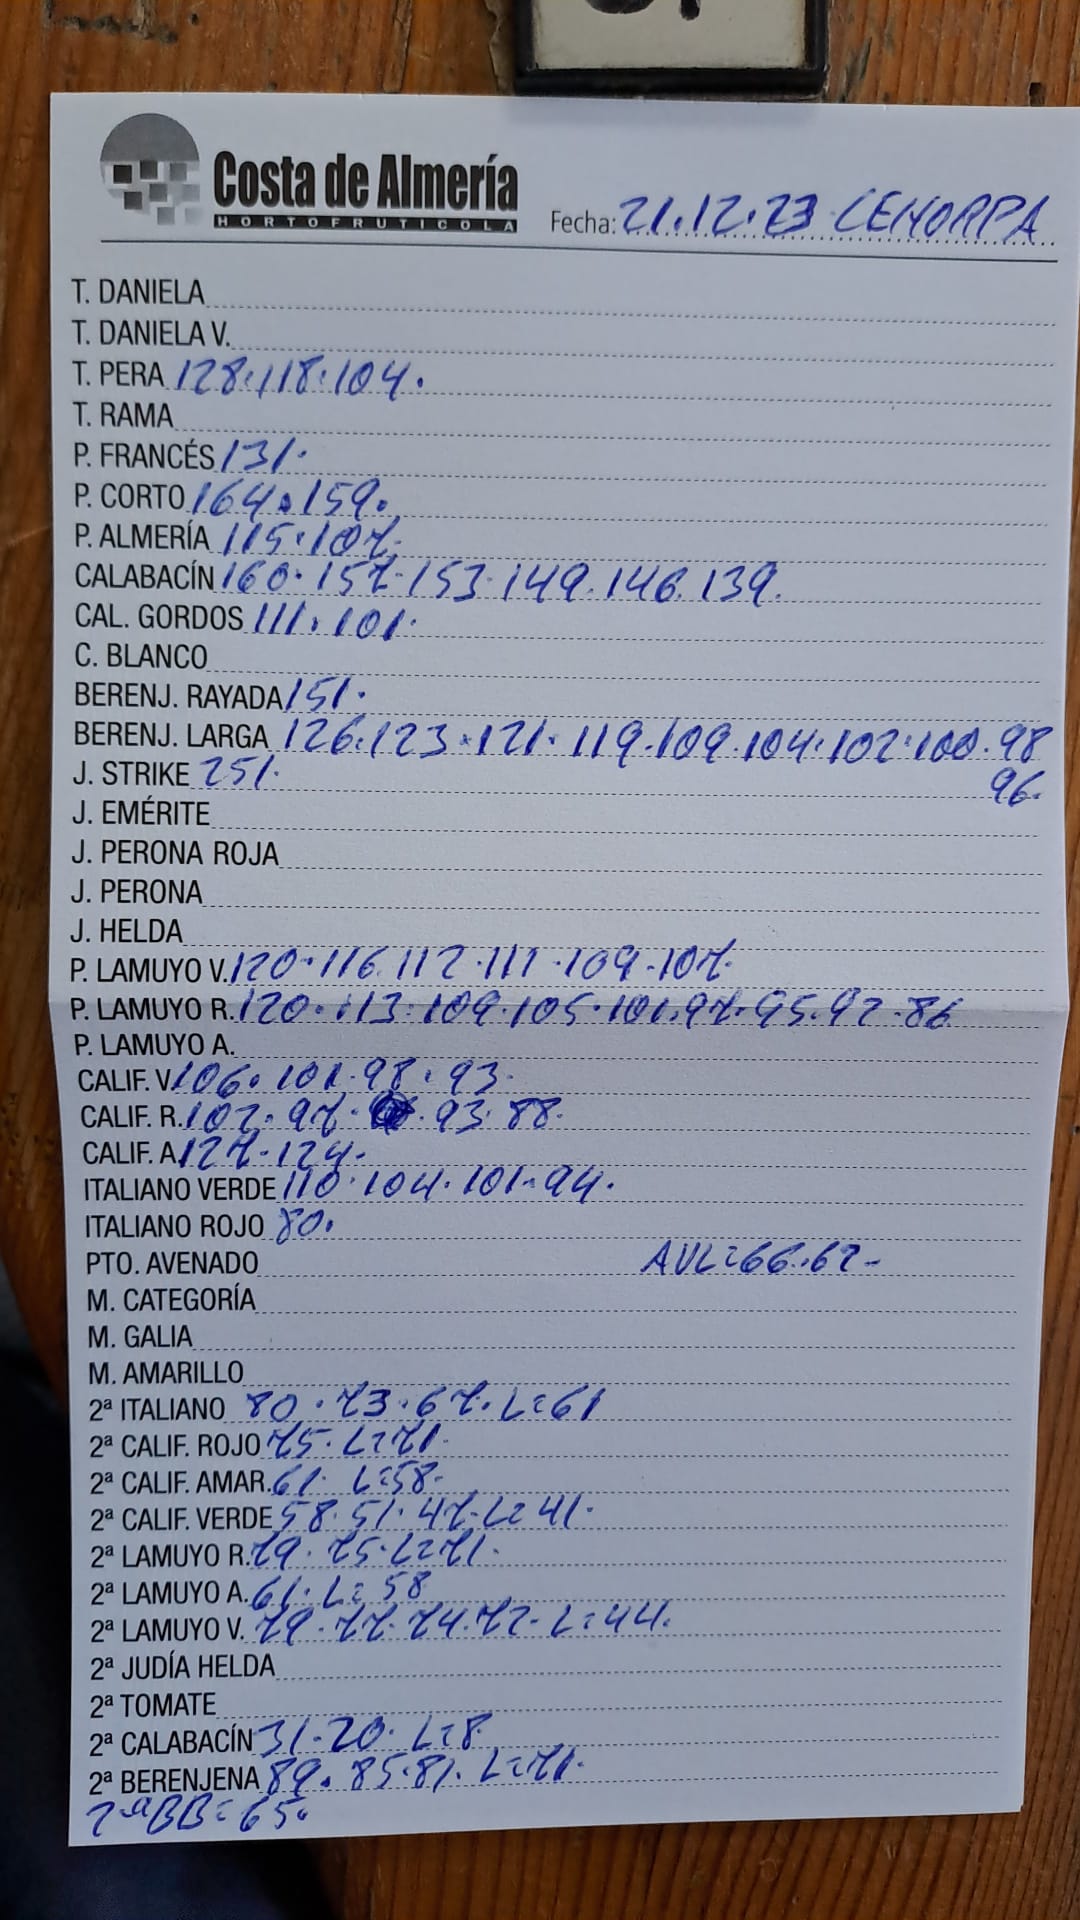 Costa de Almería
HORTOFRUTICOLA
Fecha: 21.12.23 CEHORPA
T. DANIELA
T. DANIELA V.
T. PERA 128.118.104.
T. RAMA
P. FRANCÉS 131.
P. CORTO 164.159.
P. ALMERÍA 115.107.
CALABACÍN 160.157.153.149.146.139.
CAL. GORDOS 111.101.
C. BLANCO
BERENJ. RAYADA 151.
BERENJ. LARGA 126.123.121.119.109.104.102.100.98
96.
J. STRIKE 251.
J. EMÉRITE
J. PERONA ROJA
J. PERONA
J. HELDA
P. LAMUYO V. 120.116.112.111.109.107.
P. LAMUYO R. 120.113.109.105.101.97.95.92.86
P. LAMUYO A.
CALIF. V. 106.101.98.93.
CALIF. R. 102.97.93.88.
CALIF. A. 127.124.
ITALIANO VERDE 110.104.101.94.
ITALIANO ROJO 80.
PTO. AVENADO AVL=66.62-
M. CATEGORÍA
M. GALIA
M. AMARILLO
2ª ITALIANO 80.73.67.L=61
2ª CALIF. ROJO 75.L=71.
2ª CALIF. AMAR. 61. L=58.
2ª CALIF. VERDE 58.51.47.L=41.
2ª LAMUYO R. 79.75.L=71.
2ª LAMUYO A. 61.L=58
2ª LAMUYO V. 79.77.74.72.L=44.
2ª JUDÍA HELDA
2ª TOMATE
2ª CALABACÍN 31.20.L=8.
2ª BERENJENA 89.85.81.L=71.
2ªBB=65.